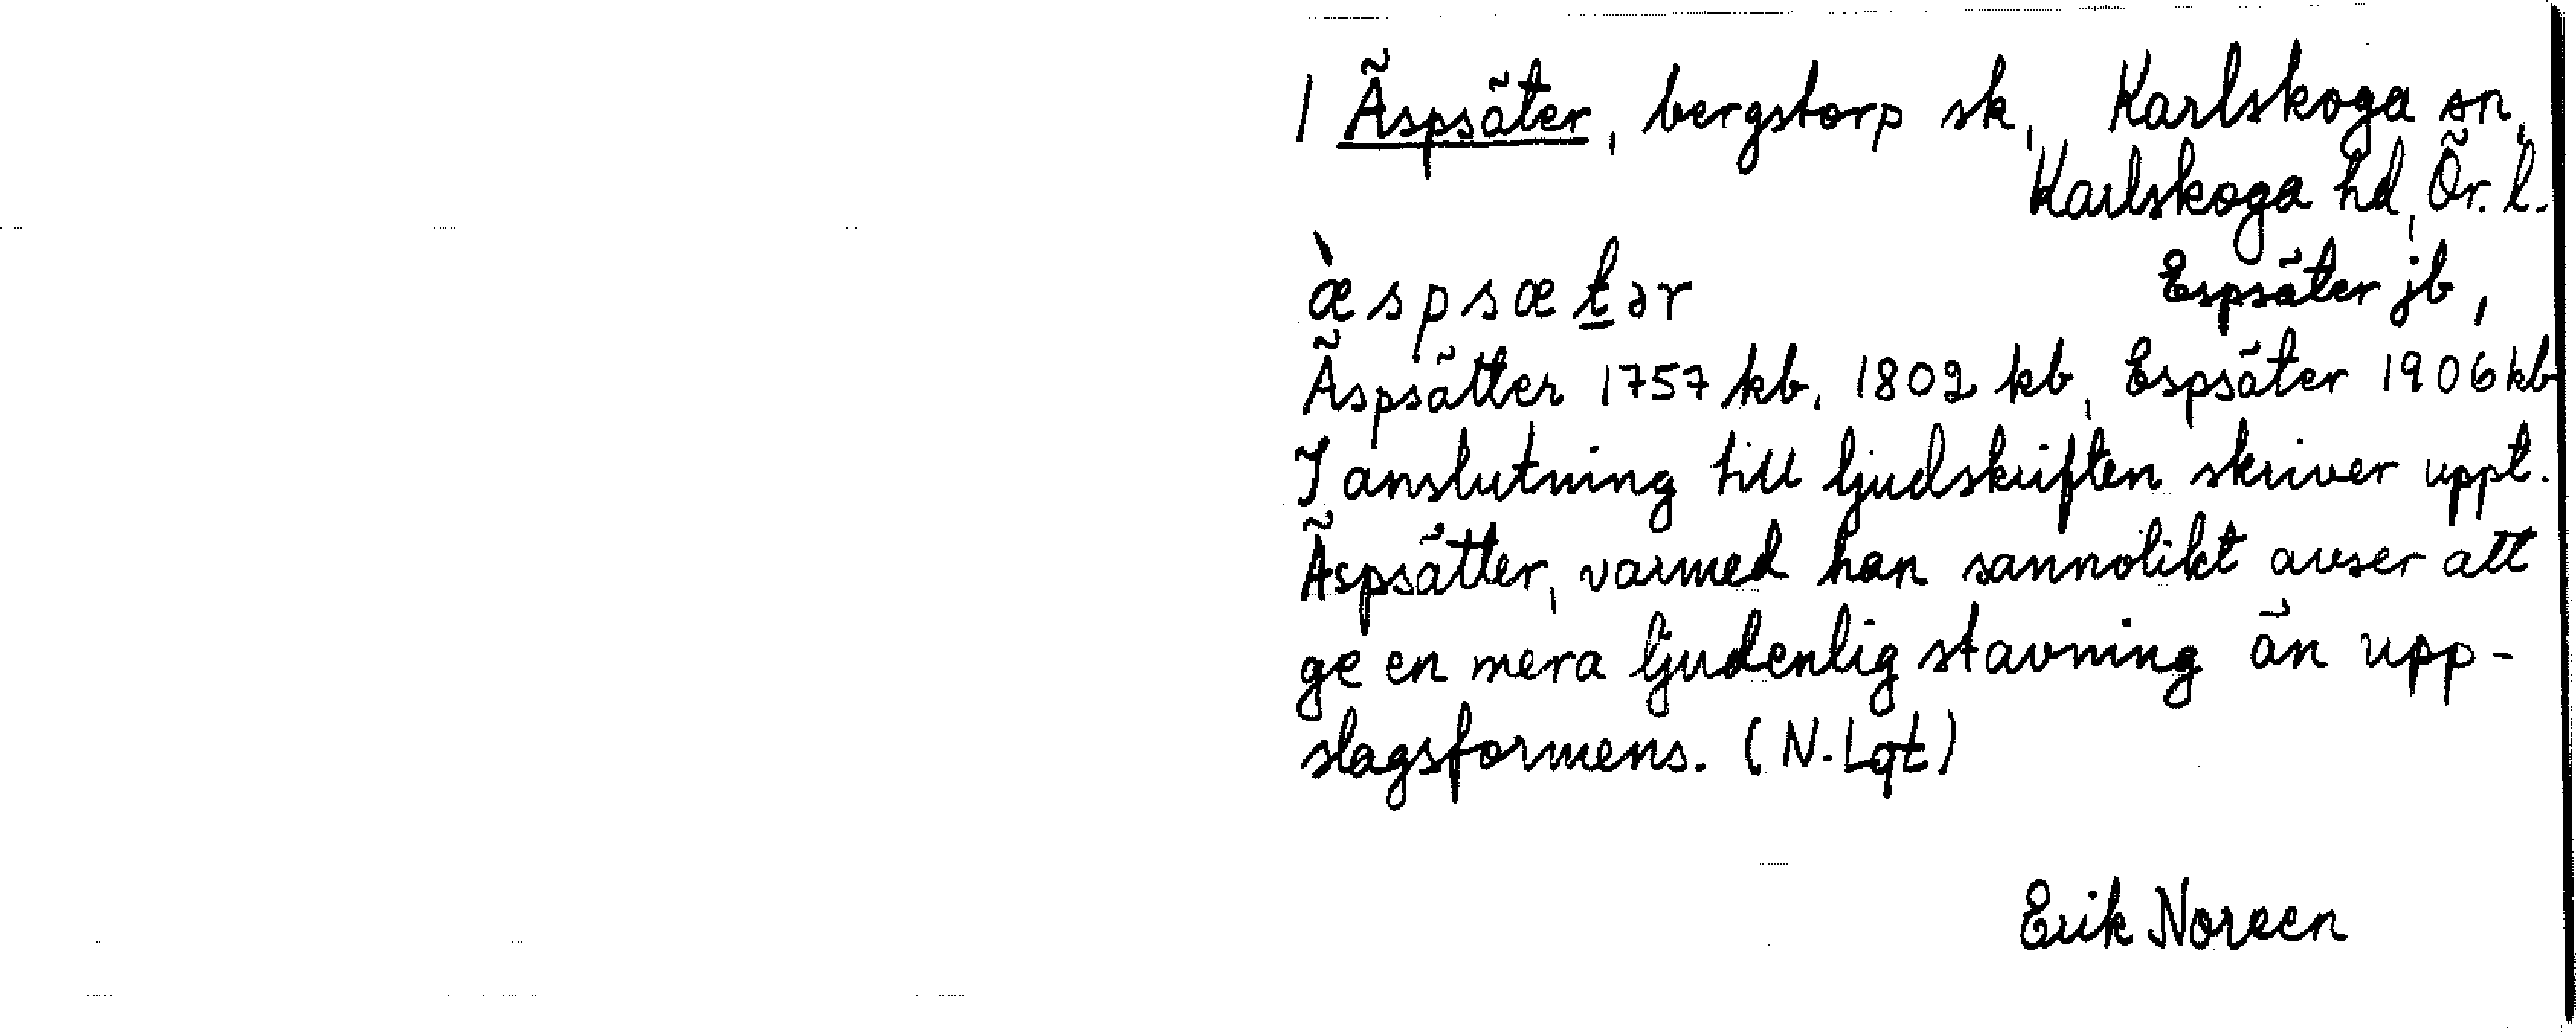 1 Äspsäter, bergstorp sk, Karlskoga sn,
Karlskoga hd, Ör. l.
æ̀spsætər Espsäter jb,
Äspsätter 1757 kb, 1802 kb, Espsäter 1906 kb
I anslutning till ljudskriften skriver uppt.
Äspsätter, varmed han sannolikt avser att
ge en mera ljudenlig stavning än upp-
slagsformens. (N. Lqt)
Erik Noreen